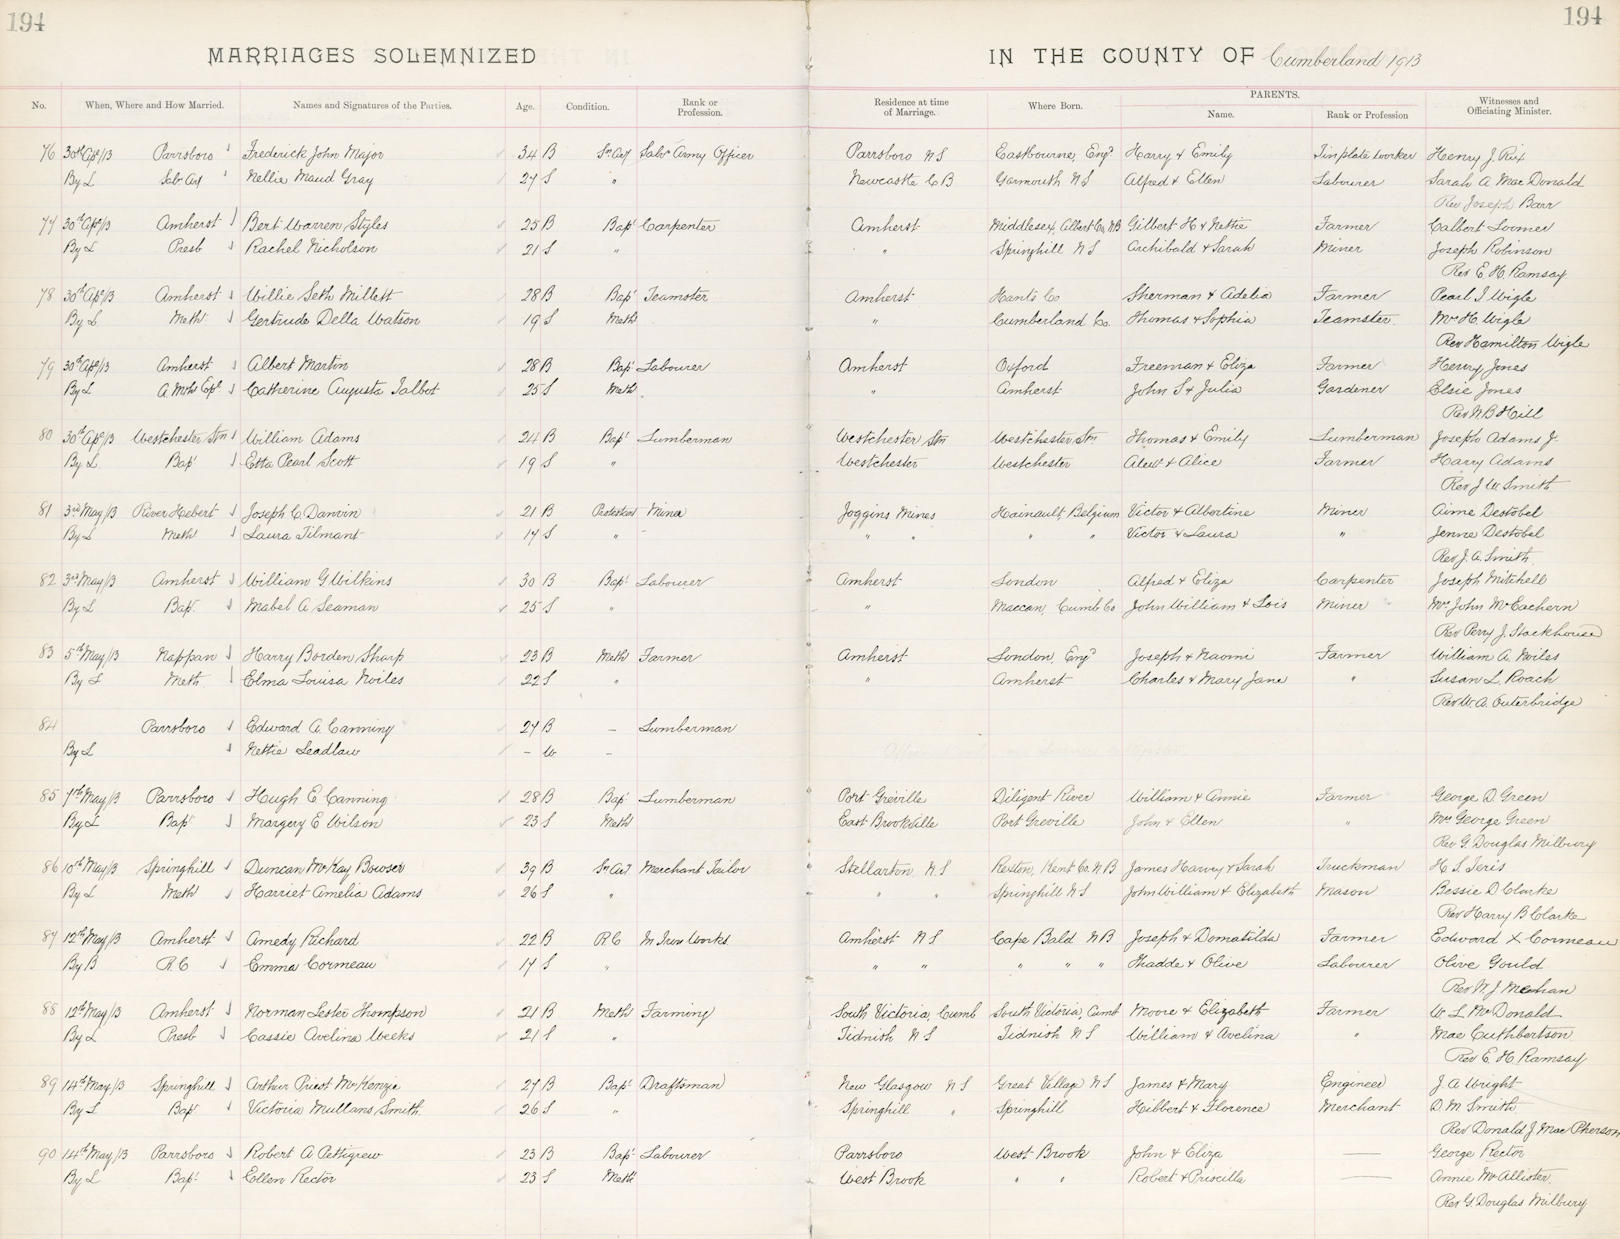 194
194
MARRIAGES SOLEMNIZED IN THE COUNTY OF Cumberland 1913
No. When, Where and How Married. Names and Signatures of the Parties. Age. Condition. Rank or Profession. Residence at time of Marriage. Where Born. PARENTS. Name. Rank or Profession Witnesses and Officiating Minister.
76 30th Apl/13 Parrsboro Frederick John Major 34 B Sn Ay Salvn Army Officer Parrsboro N S Eastbourne, Engd Harry & Emily Tinplate worker Henry J. Rix
By L Salv. Ay Nellie Maud Gray 27 S " Newcastle C B Yarmouth N S Alfred & Ellen Labourer Sarah A Mac Donald
Rev Joseph Barr
77 30th Apl/13 Amherst Bert Warren Styles 25 B Bapt Carpenter Amherst Middlesex, Albert Co, NB Gilbert H & Nettie Farmer Calbert Tormer
By L Presb Rachel Nicholson 21 S " " Springhill N S Archibald & Sarah Miner Joseph Robinson
Rev E. H. Ramsay
78 30th Apl/13 Amherst Willie Seth Millett 28 B Bapt Teamster Amherst Hants Co Sherman & Adelia Farmer Pearl I Wigle
By L Meth Gertrude Della Watson 19 S Meth " Cumberland Co. Thomas & Sophia Teamster Mrs H. Wigle
Rev Hamilton Wigle
79 30th Apl/13 Amherst Albert Martin 28 B Bapt Labourer Amherst Oxford Freeman & Eliza Farmer Henry Jones
By L A Meth Epl Catherine Augusta Talbot 25 S Meth " Amherst John S & Julia Gardener Elsie Jones
Rev N B Hill
80 30th Apl/13 Westchester Stn William Adams 24 B Bapt Lumberman Westchester Stn Westchester Stn Thomas & Emily Lumberman Joseph Adams Jr.
By L Bapt Etta Pearl Scott 19 S " Westchester Westchester Alexr & Alice Farmer Harry Adams
Rev J W Smith
81 3rd May/13 River Hebert Joseph C. Danvin 21 B Protestant Miner Joggins Mines Hainault, Belgium Victor & Albertine Miner Aime Destobel
By L Meth Laura Tilmant 17 S " " " " " Victor & Laura " Jenne Destobel
Rev J. A. Smith
82 3rd May/13 Amherst William G Wilkins 30 B Bapt Labourer Amherst London Alfred & Eliza Carpenter Joseph Mitchell
By L Bapt. Mabel A Seaman 25 S " " Maccan, Cumb Co John William & Lois Miner Mrs John McEachern
Rev Perry J. Stackhouse
83 5th May/13 Nappan Harry Borden Sharp 23 B Meth Farmer Amherst London, Engd Joseph & Naomi Farmer William A. Noiles
By L Meth Elma Louisa Noiles 22 S " " Amherst Charles & Mary Jane " Susan L. Roach
Rev W. A. Outerbridge
84 Parrsboro Edward A. Canning 27 B – Lumberman
By L Nettie Leadlaw – W –
85 7th May/13 Parrsboro Hugh E Canning 28 B Bapt Lumberman Port Greville Diligent River William & Annie Farmer George D. Green
By L Bapt Margery E Wilson 23 S Meth East Brookville Port Greville John & Ellen " Mrs George Green
Rev G. Douglas Milbury
86 10th May/13 Springhill Duncan McKay Bowser 39 B Sn Ay Merchant Tailor Stellarton N S Rexton, Kent Co. N B James Harvey & Sarah Truckman H. S. Teris
By L Meth Harriet Amelia Adams 26 S " " " Springhill N S John William & Elizabeth Mason Bessie D Clarke
Rev Harry B Clarke
87 12th May/13 Amherst Amedy Richard 22 B R C In Iron Works Amherst N S Cape Bald N B Joseph & Domatilda Farmer Edward X Cormeau
By B R. C Emma Cormeau 17 S " " " " " " Thadde & Olive Labourer Olive Gould
Rev M. J Mechan
88 12th May/13 Amherst Norman Lester Thompson 21 B Meth Farming South Victoria, Cumb South Victoria, Cumb Moore & Elizabeth Farmer W. L. McDonald
By L Presb Cassie Avelina Weeks 21 S " Tidnish N S Tidnish N S William & Avelina " Mae Cuthbertson
Rev E. H. Ramsay
89 14th May/13 Springhill Arthur Priest McKenzie 27 B Bapt Draftsman New Glasgow N S Great Village N S James & Mary Engineer J. A Wright
By L Bapt Victoria Mullans Smith 26 S " Springhill " Springhill Hibbert & Florence Merchant D. M Smith
Rev Donald J Mac Pherson
90 14th May/13 Parrsboro Robert A Pettigrew 23 B Bapt Labourer Parrsboro West Brook John & Eliza — George Rector
By L Bapt. Ellen Rector 23 S Meth West Brook " " Robert & Priscilla — Annie McAllister
Rev G. Douglas Milbury